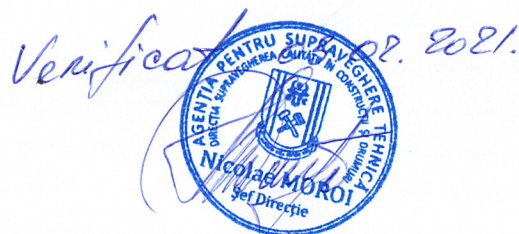 Verificat 02. 2021.
AGENȚIA PENTRU SUPRAVEGHERE TEHNICĂ
DIRECȚIA SUPRAVEGHEREA CALITĂȚII ÎN CONSTRUCȚII ȘI DRUMURI
Nicolae MOROI
Șef Direcție